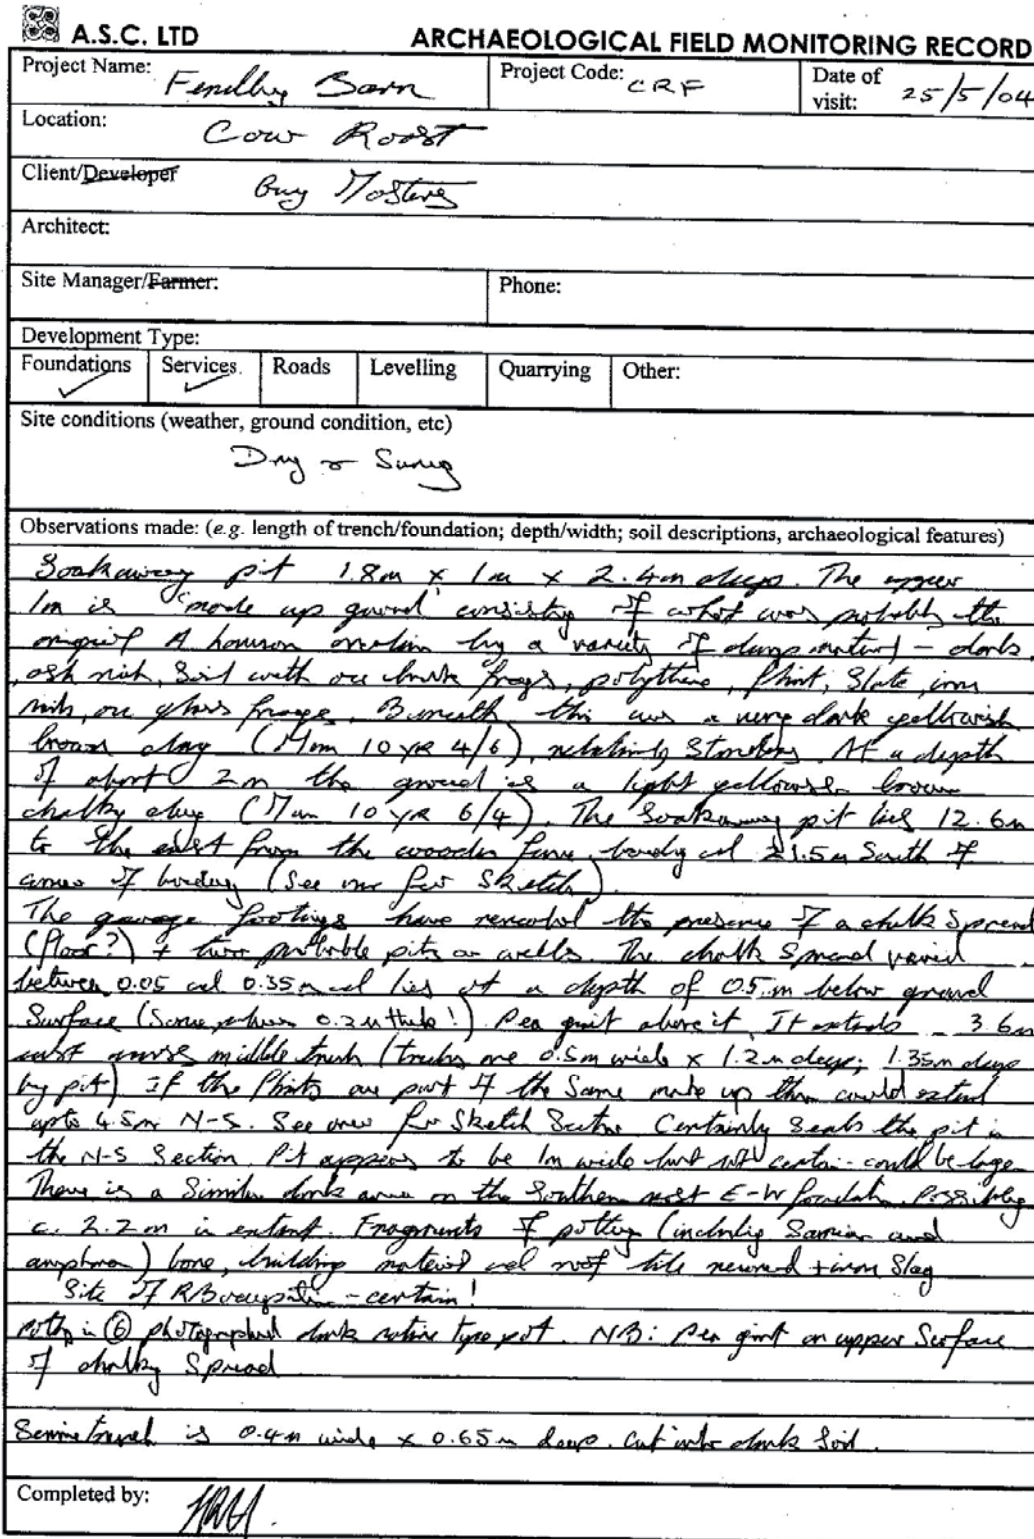 A.S.C. LTD
ARCHAEOLOGICAL FIELD MONITORING RECORD
Project Name: Barn
Project Code: CRF
Date of visit: 25/5/04
Location: Cow Roost
Client/Developer Guy
Architect:
Site Manager/Farmer:
Phone:
Development Type:
Foundations ✓
Services. ✓
Roads
Levelling
Quarrying
Other:
Site conditions (weather, ground condition, etc)
Dry & Sunny
Observations made: (e.g. length of trench/foundation; depth/width; soil descriptions, archaeological features)
Soakaway pit 1.8m x 1m x 2.4m deep. The upper
1m is 'made up ground' consisting of what was probably the
original A horizon overlain by a variety of dump material – dark,
ash rich, soil with occ brick frags, polythene, flint, slate, iron
occ glass frags. Beneath this was a very dark yellowish
brown clay (Mun 10 YR 4/6), relatively stoneless. At a depth
of about 2m the ground is a light yellowish brown
chalky clay (Mun 10 YR 6/4). The soakaway pit lies 12.6m
to the east from the wooden fence boundary and 21.5m South of
corner of building (See over for sketch).
The garage footings have revealed the presence of a chalk spread
(floor?) + two probable pits or wells. The chalk spread varied
between 0.05 and 0.35m and lies at a depth of 0.5m below ground
surface (Somewhere 0.2m thick!). Pea grit above it. It extends 3.6m
middle trench (trenches are 0.5m wide x 1.2m deep; 1.35m deep
by pit) If the flints are part of the same make up then could extend
upto 4.5m N-S. See over for sketch Section Certainly seals the pit in
the N-S Section. Pit appears to be 1m wide but not certain - could be large
There is a similar dark area on the Southern most E-W foundation. Possibly
c. 2.2m in extent. Fragments of pottery (including Samian and
amphora) bone, building material and roof tile + iron slag
Site of RB occupation – certain!
in ⑥ photographed dark native type pot. NB: Pea grit on upper surface
of chalky spread
Service trench is 0.4m wide x 0.65m deep. Cut into dark soil.
Completed by: